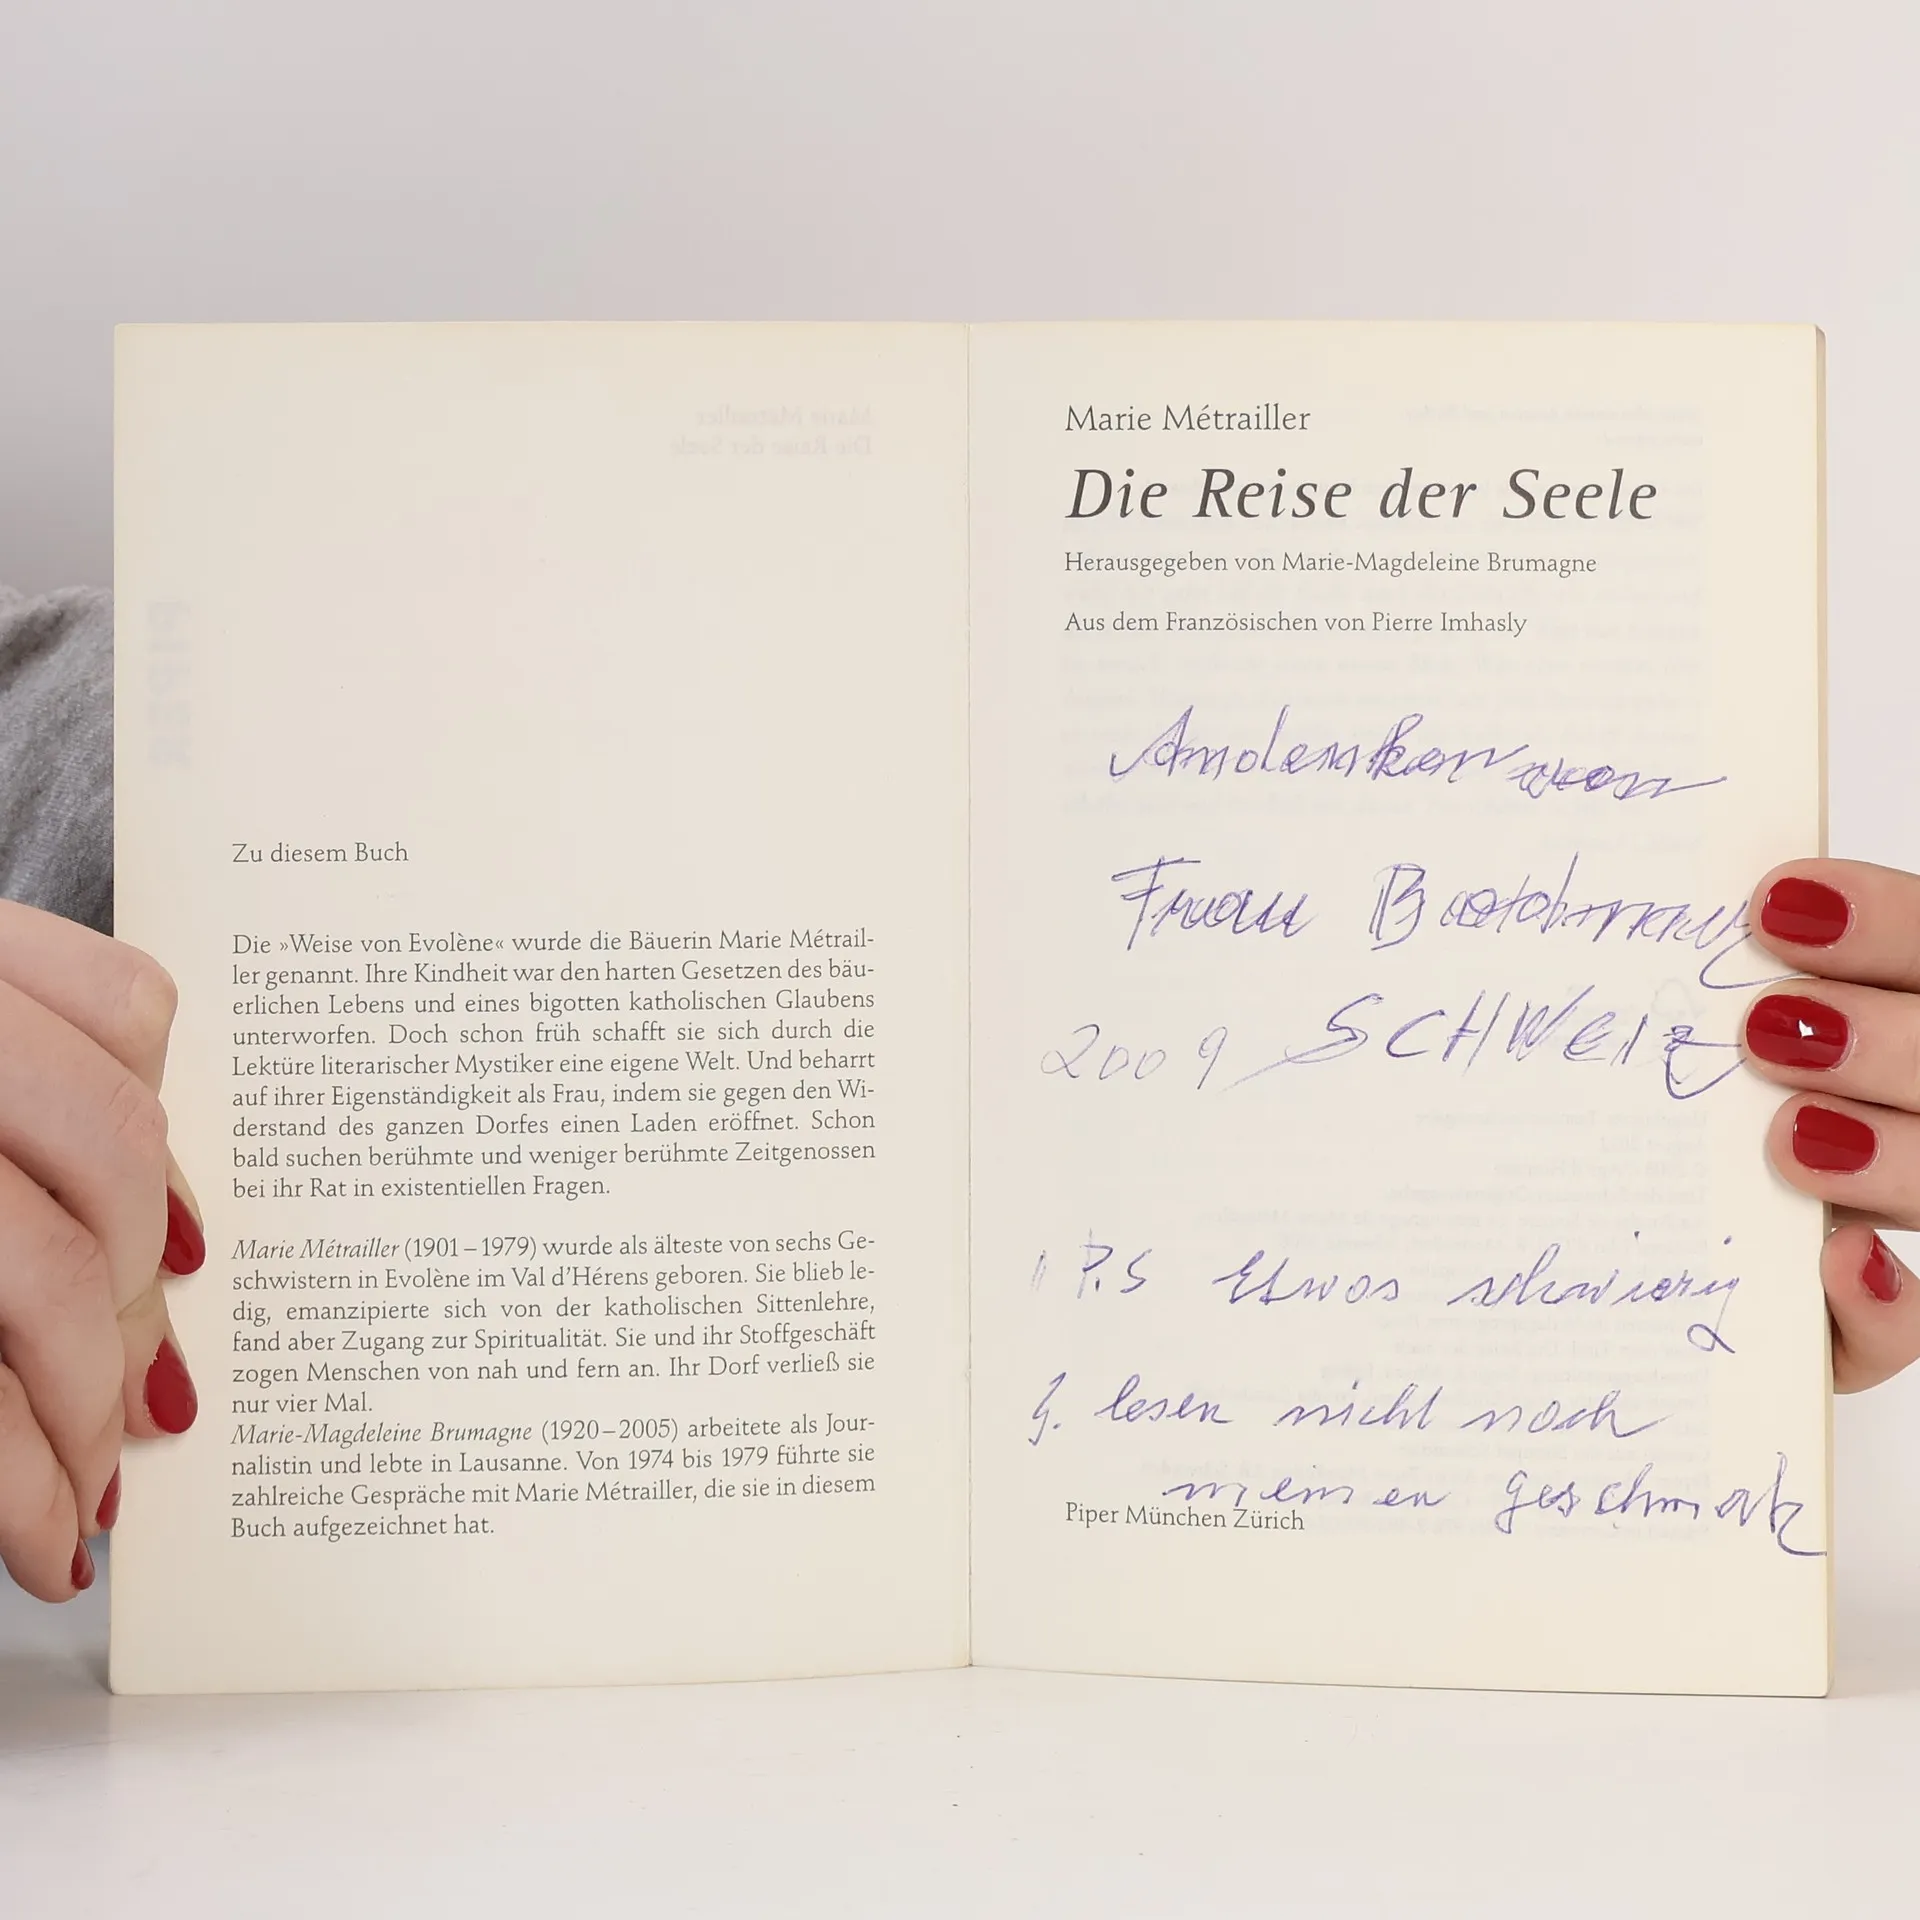 Zu diesem Buch
Die »Weise von Evolène« wurde die Bäuerin Marie Métrail-
ler genannt. Ihre Kindheit war den harten Gesetzen des bäu-
erlichen Lebens und eines bigotten katholischen Glaubens
unterworfen. Doch schon früh schafft sie sich durch die
Lektüre literarischer Mystiker eine eigene Welt. Und beharrt
auf ihrer Eigenständigkeit als Frau, indem sie gegen den Wi-
derstand des ganzen Dorfes einen Laden eröffnet. Schon
bald suchen berühmte und weniger berühmte Zeitgenossen
bei ihr Rat in existentiellen Fragen.
Marie Métrailler (1901–1979) wurde als älteste von sechs Ge-
schwistern in Evolène im Val d'Hérens geboren. Sie blieb le-
dig, emanzipierte sich von der katholischen Sittenlehre,
fand aber Zugang zur Spiritualität. Sie und ihr Stoffgeschäft
zogen Menschen von nah und fern an. Ihr Dorf verließ sie
nur vier Mal.
Marie-Magdeleine Brumagne (1920–2005) arbeitete als Jour-
nalistin und lebte in Lausanne. Von 1974 bis 1979 führte sie
zahlreiche Gespräche mit Marie Métrailler, die sie in diesem
Buch aufgezeichnet hat.
Marie Métrailler
Die Reise der Seele
Herausgegeben von Marie-Magdeleine Brumagne
Aus dem Französischen von Pierre Imhasly
Andenken von
Frau
2009 SCHWEIZ
P.S Etwas schwierig
z. lesen nicht nach
meinen geschmak
Piper München Zürich